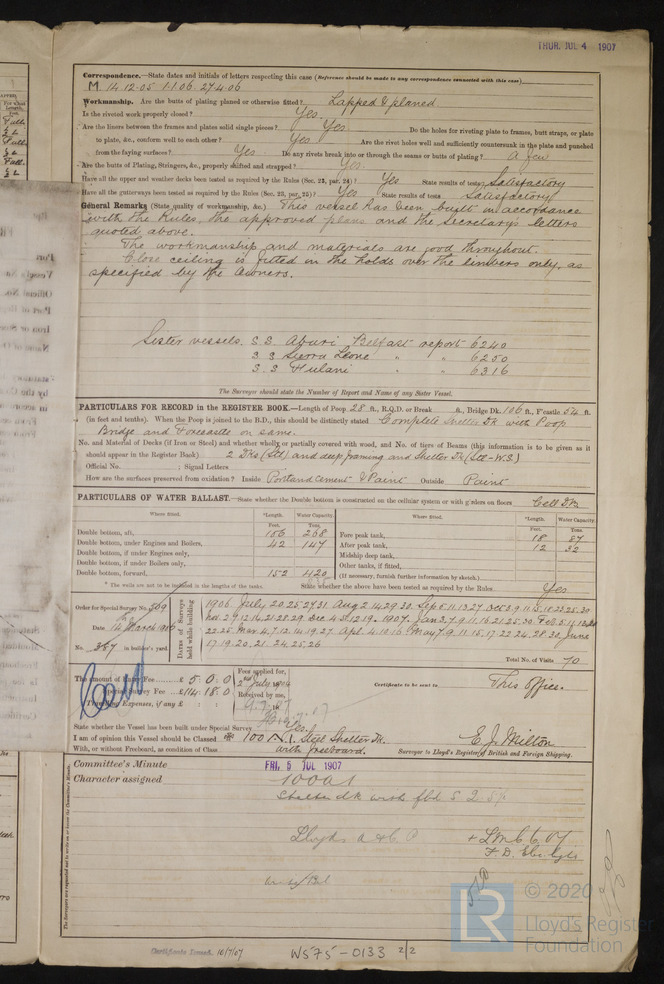 THUR. JUL 4 1907
Correspondence.—State dates and initials of letters respecting this case (Reference should be made to any correspondence connected with this case)
M 14.12.05 1.1.06 27.4.06
Workmanship. Are the butts of plating planed or otherwise fitted? Lapped & planed
Is the riveted work properly closed? Yes
Are the liners between the frames and plates solid single pieces? Yes Do the holes for riveting plate to frames, butt straps, or plate
to plate, &c., conform well to each other? Yes Are the rivet holes well and sufficiently countersunk in the plate and punched
from the faying surfaces? Yes Do any rivets break into or through the seams or butts of plating? A few
Are the butts of Plating, Stringers, &c., properly shifted and strapped? Yes
Have all the upper and weather decks been tested as required by the Rules (Sec. 23, par. 24)? Yes State results of tests Satisfactory
Have all the gutterways been tested as required by the Rules (Sec. 23, par. 25)? Yes State results of tests Satisfactory
General Remarks (State quality of workmanship, &c.) This vessel has been built in accordance
with the Rules, the approved plans and the Secretary's letters
quoted above.
The workmanship and materials are good throughout.
Close ceiling is fitted in the holds over the limbers only, as
specified by the Owners.
Sister vessels. S.S. Aburi, Belfast report 6240
S.S. Sierra Leone " " 6250
S.S. Fulani " " 6316
The Surveyor should state the Number of Report and Name of any Sister Vessel.
PARTICULARS FOR RECORD in the REGISTER BOOK.—Length of Poop 28 ft., R.Q.D. or Break ft., Bridge Dk. 106 ft., F'castle 54 ft.
(in feet and tenths). When the Poop is joined to the B.D., this should be distinctly stated Complete Shelter Dk with Poop
Bridge and Forecastle on same.
No. and Material of Decks (if Iron or Steel) and whether wholly or partially covered with wood, and No. of tiers of Beams (this information is to be given as it
should appear in the Register Book) 2 Dks (Stl) and deep framing and Shelter Dk (Stl - W.S.)
Official No. ; Signal Letters
How are the surfaces preserved from oxidation? Inside Portland cement & Paint Outside Paint
PARTICULARS OF WATER BALLAST.—State whether the Double bottom is constructed on the cellular system or with girders on floors Cell DB
Where fitted. *Length. Water Capacity. Where fitted. *Length. Water Capacity.
Feet. Tons. Feet. Tons.
Double bottom, aft, 156 268 Fore peak tank, 18 87
Double bottom, under Engines and Boilers, 42 147 After peak tank, 12 32
Double bottom, if under Engines only, Midship deep tank,
Double bottom, if under Boilers only, Other tanks, if fitted,
Double bottom, forward, 152 420 (If necessary, furnish further information by sketch.)
* The wells are not to be included in the lengths of the tanks. State whether the above have been tested as required by the Rules. Yes
Order for Special Survey No. 569
Date 14th March 1906
No. 387 in builder's yard.
Dates of Surveys held while building
1906 July 20.25.27.31 Aug 2.14.29.30
17.19.20.21.24.25.26
Total No. of Visits 70
The amount of Entry Fee £ 5 : 0 : 0
Special Survey Fee £114 : 18 : 0
Travelling Expenses, if any £
Fee applied for,
2nd July 1907
Received by me,
Certificate to be sent to This office.
State whether the Vessel has been built under Special Survey Yes
I am of opinion this Vessel should be Classed 100A1. Steel Shelter Dk.
With, or without Freeboard, as condition of Class with freeboard.
E. J. Milton
Surveyor to Lloyd's Register of British and Foreign Shipping.
Committee's Minute FRI. 5 JUL 1907
Character assigned 100A1
Shelter dk with fbd
Lloyds a & C P + LMC 6.07
F.D.
Certificate Issued. 10/7/07
W575-0133 2/2
LR
© 2020
Lloyd's Register
Foundation